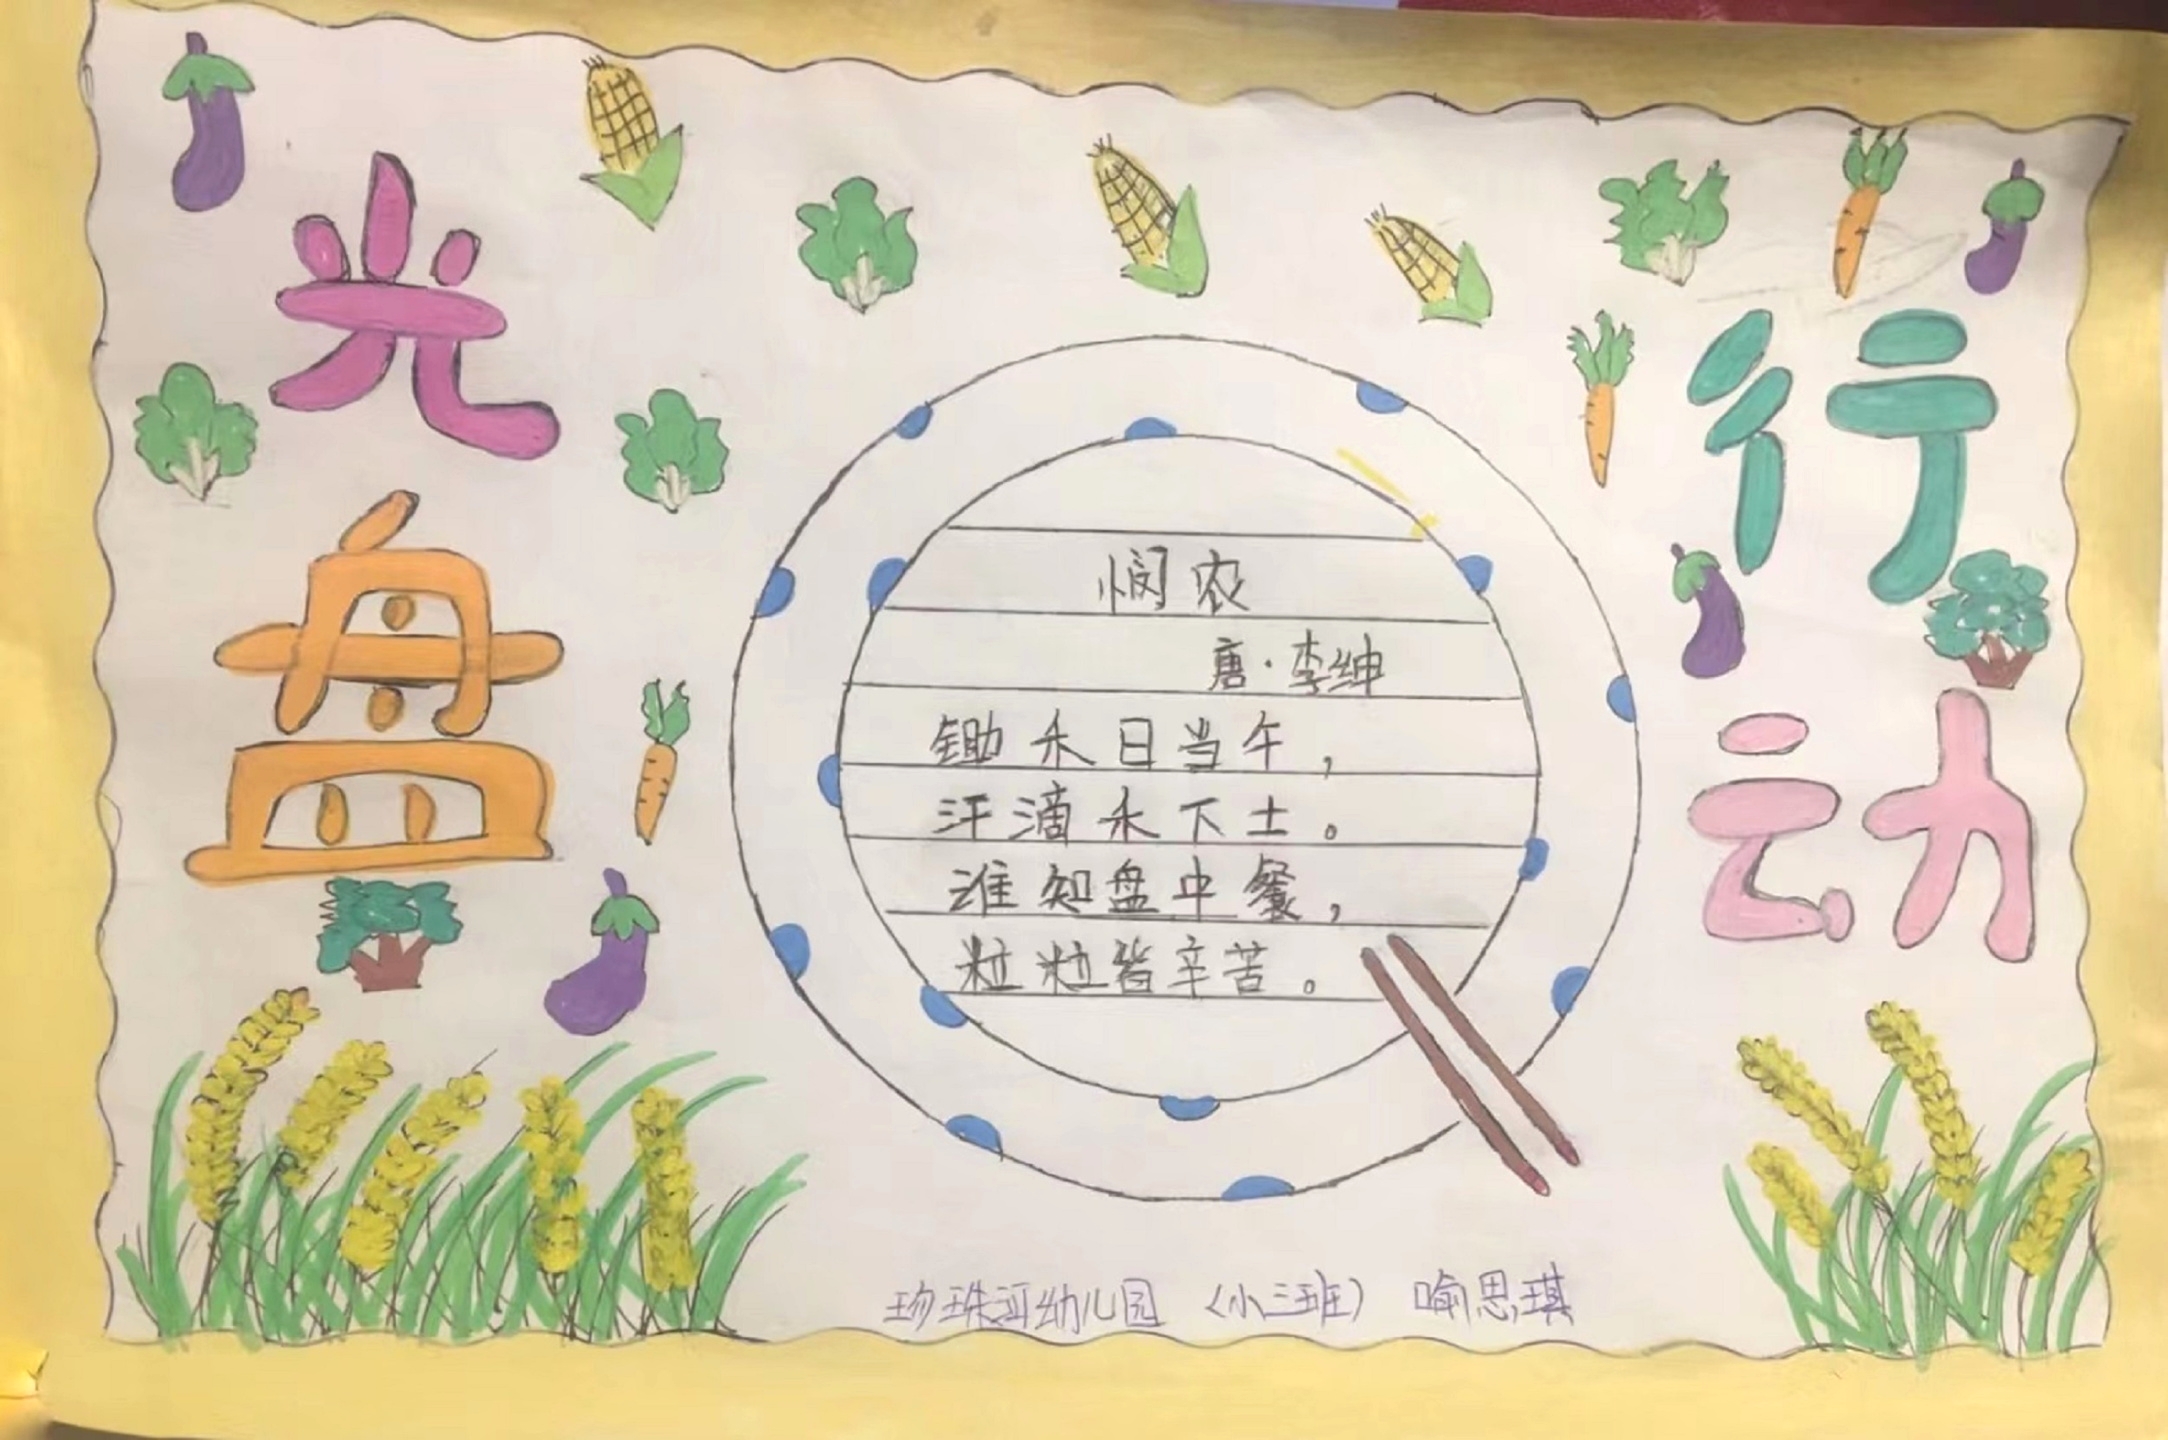 光盘
行动
悯农
唐·李绅
锄禾日当午，
汗滴禾下土。
谁知盘中餐，
粒粒皆辛苦。
珍珠河幼儿园（小三班） 喻思琪